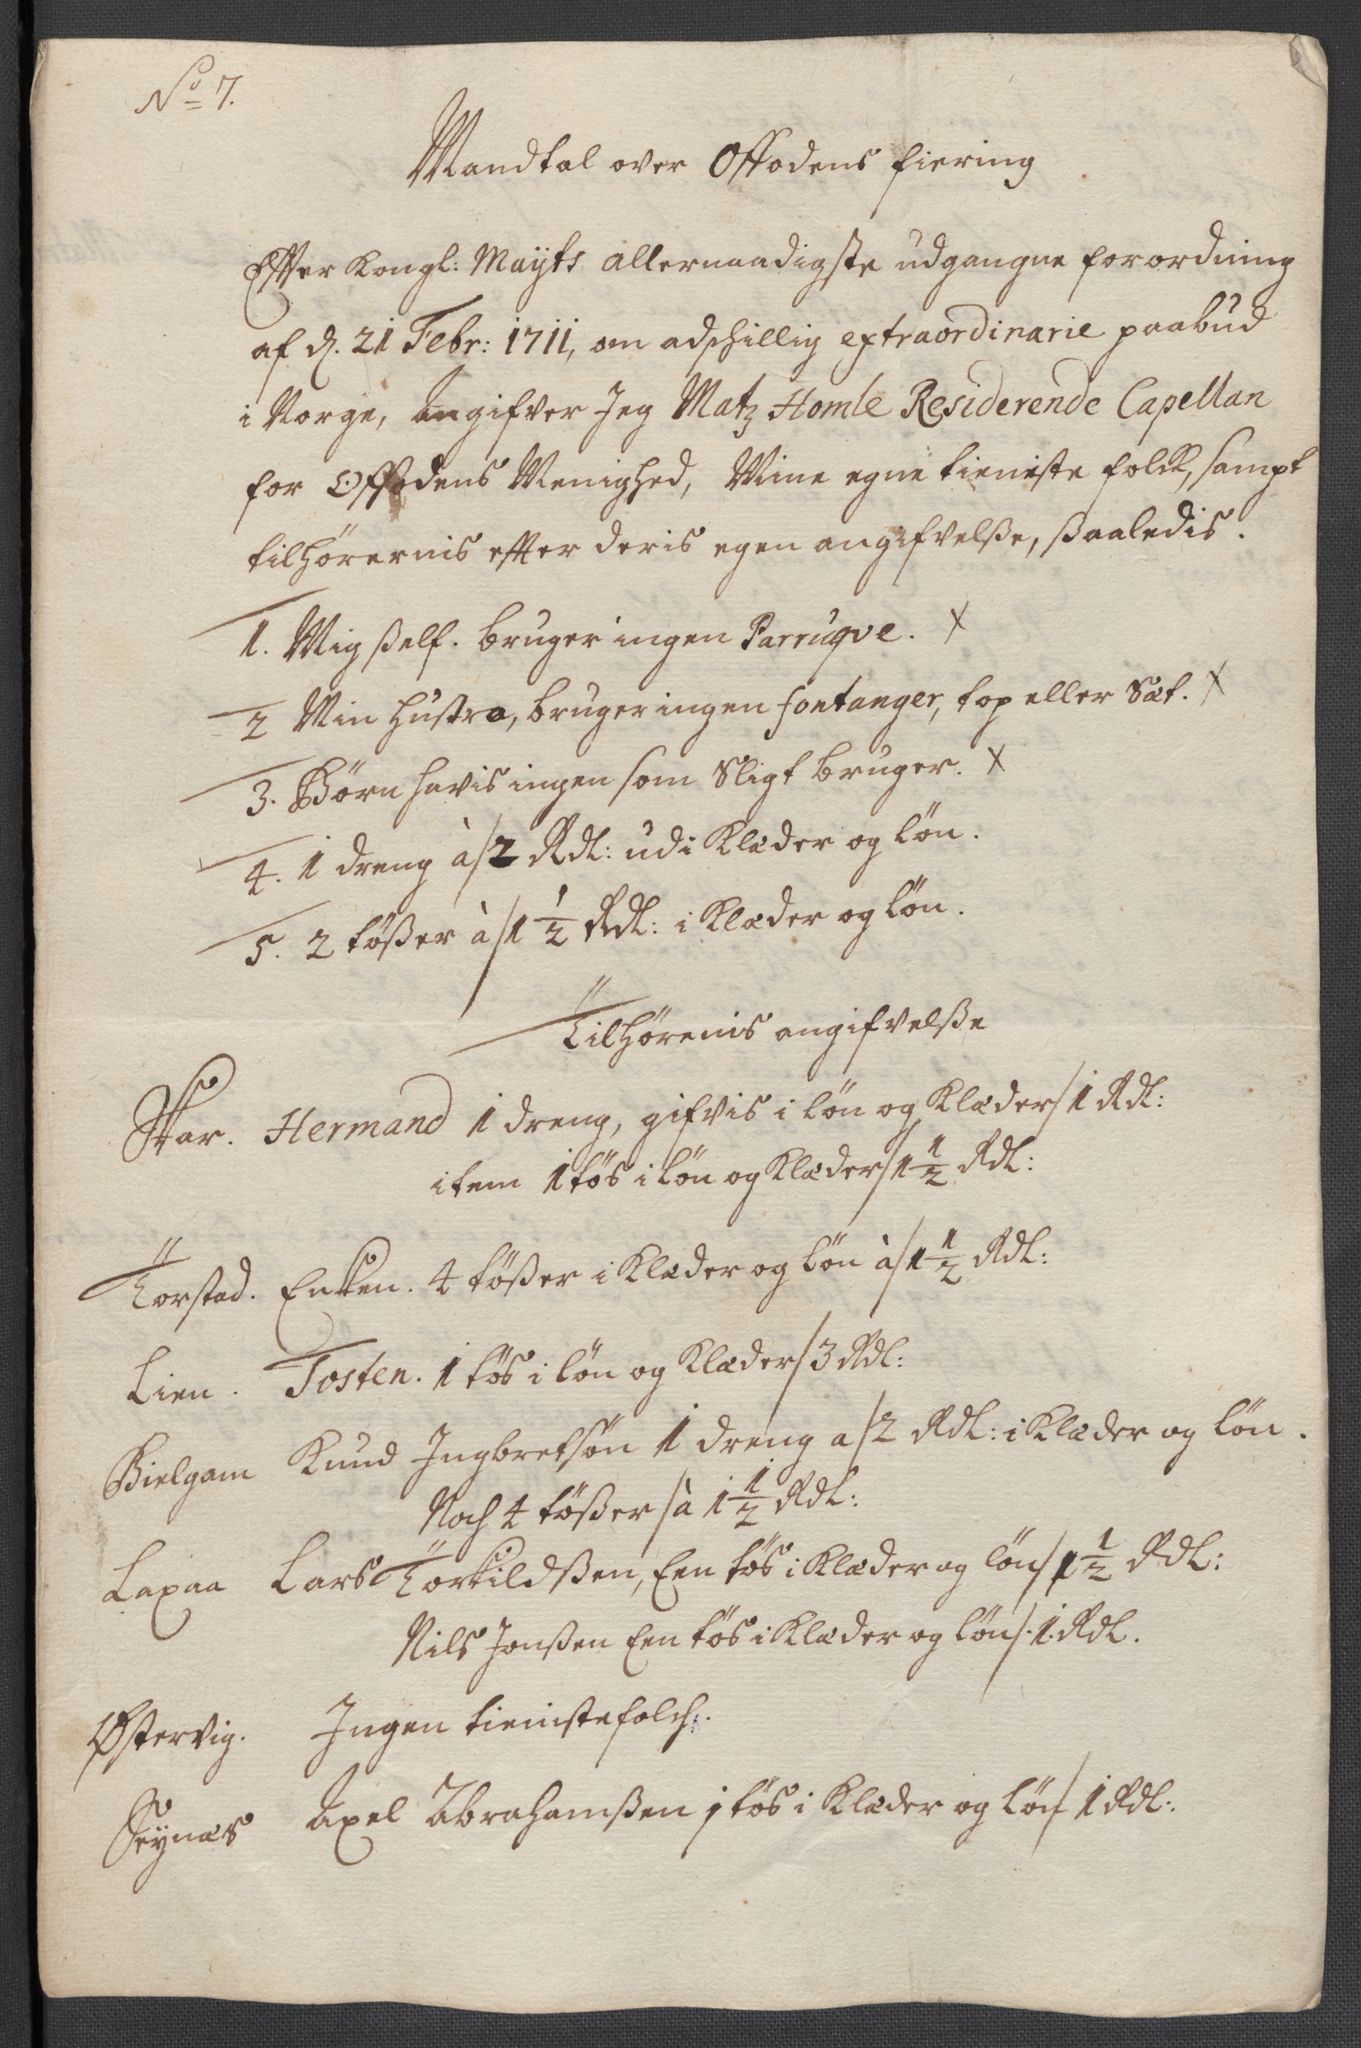 No 7.
Mandtal over Offodens fiering
Effter Kongl: Mayts allernaadigste udgangne forordning
af d. 21 Febr: 1711, om adschillig extraordinarie paabud
i Norge, Angifver Jeg Matz Homle Residerende Capellan
for Offodens Menighed, Mine egne tieniste folck, sampt
tilhørernis effter deris egen angifvelße, saaledis.
1. Mig ßelf. bruger ingen Parruqve. X
2 Min hustro, bruger ingen fontanger, top eller Sæt. X
3. Børn hafvis ingen som Sligt bruger. X
4. 1 dreng à / 2 Rdl: udi Klæder og løn.
5. 2 tøßer à / 1 1/2 Rdl: i Klæder og løn.
Tilhørenis angifvelße
Skar. Hermand 1 dreng, gifvis i løn og Klæder / 1 Rdl:
item 1 tøs i løn og Klæder / 1 1/2 Rdl:
Torstad. Enken. 4 tøßer i Klæder og løn à / 1 1/2 Rdl:
Lien. Tosten. 1 tøs i løn og Klæder / 3 Rdl:
Bielgam Knud Ingbretsøn 1 dreng a / 2 Rdl: i Klæder og løn.
Noch 4 tøßer / à 1 1/2 Rdl:
Laxaa Lars Torkildßen, Een tøs i Klæder og løn / 1 1/2 Rdl:
Nils Jonßen Een tøs i Klæder og løn /. 1. Rdl.
Østervig. Ingen tienistefolch.
Seynæs Axel Abrahamßen 1 tøs i Klæder og løn / 1 Rdl: